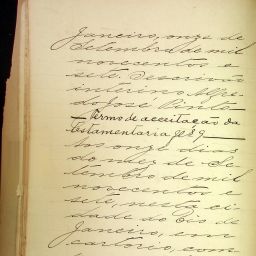 Janeiro, onze de
Setembro de mil
novecentos e
sete. Escrivão
interino Alfre-
do José Pinto
Termo de acceitação da
Testamentaria
Aos onze dias
do mez de Se-
tembro de mil
novecentos e
sete, nesta ci-
dade do Rio de
Janeiro, em
cartorio, com-